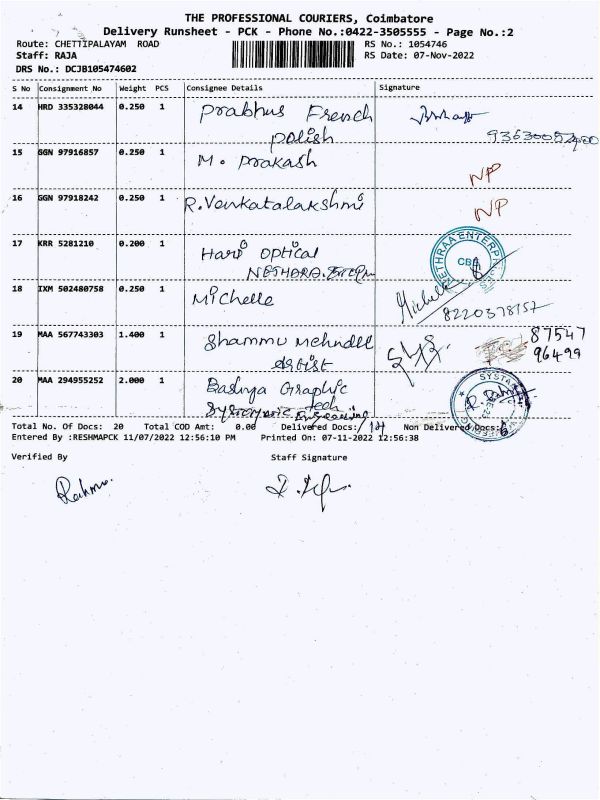 THE PROFESSIONAL COURIERS, Coimbatore
Delivery Runsheet - PCK - Phone No.:0422-3505555 - Page No.:2
Route: CHETTIPALAYAM ROAD
RS No.: 1054746
Staff: RAJA
RS Date: 07-Nov-2022
DRS No.: DCJB105474602
S No Consignment No Weight PCS Consignee Details Signature
14 HRD 335328044 0.250 1 Prabhus French
Polish
15 GGN 97916857 0.250 1 M. Prakash
NP
16 GGN 97918242 0.250 1 R.Venkatalakshmi
NP
17 KRR 5281210 0.200 1 Hari Optical
NETHRAA ENTERPRISES
CBE
18 IXM 502480758 0.250 1 Michelle Michelle
8220378157
19 MAA 567743303 1.400 1 Shammu Mehndi
Artist
87547
96499
20 MAA 294955252 2.000 1 Graphic
Tech
Engineering
Total No. Of Docs: 20 Total COD Amt: 0.00 Delivered Docs: Non Delivered Docs:
Entered By :RESHMAPCK 11/07/2022 12:56:10 PM Printed On: 07-11-2022 12:56:38
Verified By Staff Signature